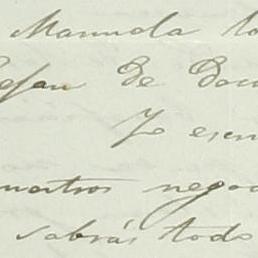 Manuela to
de
Yo escri
nuestros negoc
sabrás todo